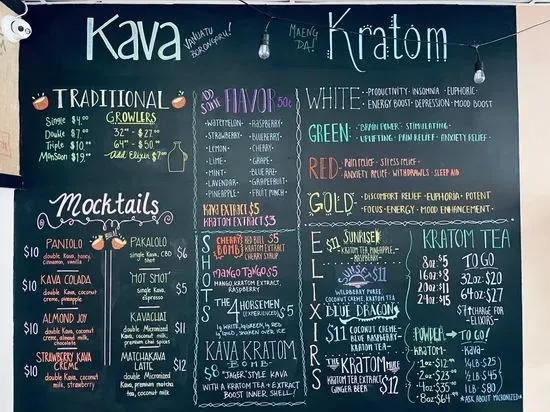 Kava
VANUATU
BORONGORU!
MAENG
DA!
Kratom
TRADITIONAL
Single $4.00
Double $7.00
Triple $10.00
Monsoon $19.00
GROWLERS
32oz - $27.00
64oz - $50.00
Add Elixir $7.00
ADD
SOME
FLAVOR 50¢
WATERMELON · RASPBERRY
STRAWBERRY · BLUEBERRY
LEMON · CHERRY
LIME · GRAPE
MINT · BLUE RAZ
LAVENDAR · GRAPEFRUIT
PINEAPPLE · FRUIT PUNCH
KAVA EXTRACT $5
KRATOM EXTRACT $3
WHITE · PRODUCTIVITY · INSOMNIA · EUPHORIC ·
ENERGY BOOST · DEPRESSION · MOOD BOOST
GREEN: · BRAIN POWER · STIMULATING ·
UPLIFTING · PAIN RELIEF · ANXIETY RELIEF ·
RED: · PAIN RELIEF · STRESS RELIEF ·
ANXIETY RELIEF · WITHDRAWLS · SLEEP AID
GOLD · DISCOMFORT RELIEF · EUPHORIA · POTENT
FOCUS · ENERGY · MOOD ENHANCEMENT ·
Mocktails
$10 PANIOLO
double Kava, honey,
cinnamon, vanilla
$10 KAVA COLADA
double Kava, coconut
creme, pineapple
$10 ALMOND JOY
double Kava, coconut
creme, almond milk,
chocolate
$10 STRAWBERRY KAVA
CREME
double Kava, coconut
milk, strawberry
PAKALOLO $6
single Kava, CBD
shot
HOT SHOT $5
single Kava,
espresso
KAVACHAI $11
double Micronized
Kava, coconut milk,
premium chai spices
MATCHAKAVA
LATTE $12
double Micronized
Kava, premium matcha
tea, coconut milk
SHOTS
CHERRY
BOMB $5
RED BULL
KRATOM EXTRACT
CHERRY SYRUP
MANGO TANGO $5
MANGO, KRATOM EXTRACT,
RASPBERRY
THE 4 HORSEMEN $5
(EXPERIENCED)
1g WHITE, 1g GREEN, 1g RED,
1g GOLD, SHAKEN OVER ICE
KAVA KRATOM
BOMB
$8 "JAGER" STYLE KAVA
WITH A KRATOM TEA + EXTRACT
BOOST INNER SHELL!
ELIXIRS
$11 SUNRISE
KRATOM TEA, PINEAPPLE,
RASPBERRY
$11
WILDBERRY PUREE
COCONUT CREME, KRATOM TEA
BLUE DRAGON
$11 COCONUT CREME-
BLUE RASPBERRY-
KRATOM TEA-
THE KRATOM MULE
KRATOM TEA, EXTRACT
GINGER BEER $12
KRATOM TEA
8oz $5
16oz $8
20oz $11
24oz $15
TO GO
32oz: $20
64oz $27
$7↑CHARGE FOR
-ELIXIRS-
POWDER → TO GO!
KRATOM-
-KAVA-
¼LB $25
½LB $45
1LB $80
*ASK ABOUT MICRONIZED